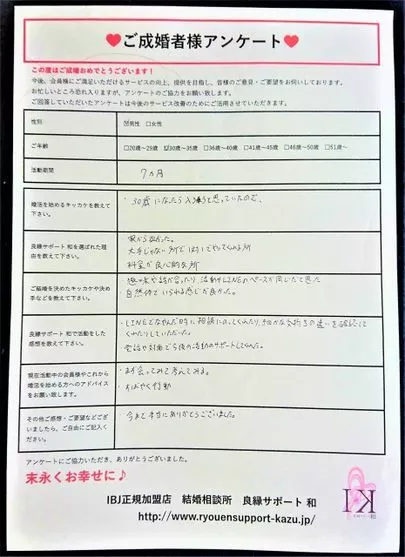 ♥ご成婚者様アンケート♥
この度はご成婚おめでとうございます！
今後、会員様にご満足いただけるサービスの向上、提供を目指し、皆様のご意見・ご要望をお伺いしております。
お忙しいところ恐れ入りますが、アンケートのご協力をお願い致します。
ご回答していただいたアンケートは今後のサービス改善のためにご活用させていただきます。
性別 ☑男性 □女性
ご年齢 □20歳～29歳 ☑30歳～35歳 □36歳～40歳 □41歳～45歳 □46歳～50歳 □51歳～
活動期間 7ヵ月
婚活を始めるキッカケを教えて下さい。
・30歳になったら入ろうと思っていたので、
良縁サポート 和を選ばれた理由を教えて下さい。
家から近かった。
大手じゃない所で
料金が良心的な所
ご結婚を決めたキッカケや決め手などを教えて下さい。
・趣味や話が合ったり、活動やLINEのペースが同じだと思った
・自然体でいられる感じが良かった。
良縁サポート 和で活動をした感想を教えて下さい。
・LINEでなやんだ時に相談にのってくれたり、細かな
くれたりしていただいた。
・電話や対面で今後の活動のサポートしてくれた。
現在活動中の会員様やこれから婚活を始める方へのアドバイスをお願い致します。
・まず会ってみて考えてみる。
・すばやく行動
その他ご感想・ご要望などございましたら、ご自由にご記入ください。
今まで本当にありがとうございました。
アンケートにご協力いただき、ありがとうございました。
末永くお幸せに♪
IBJ正規加盟店 結婚相談所 良縁サポート 和
http://www.ryouensupport-kazu.jp/